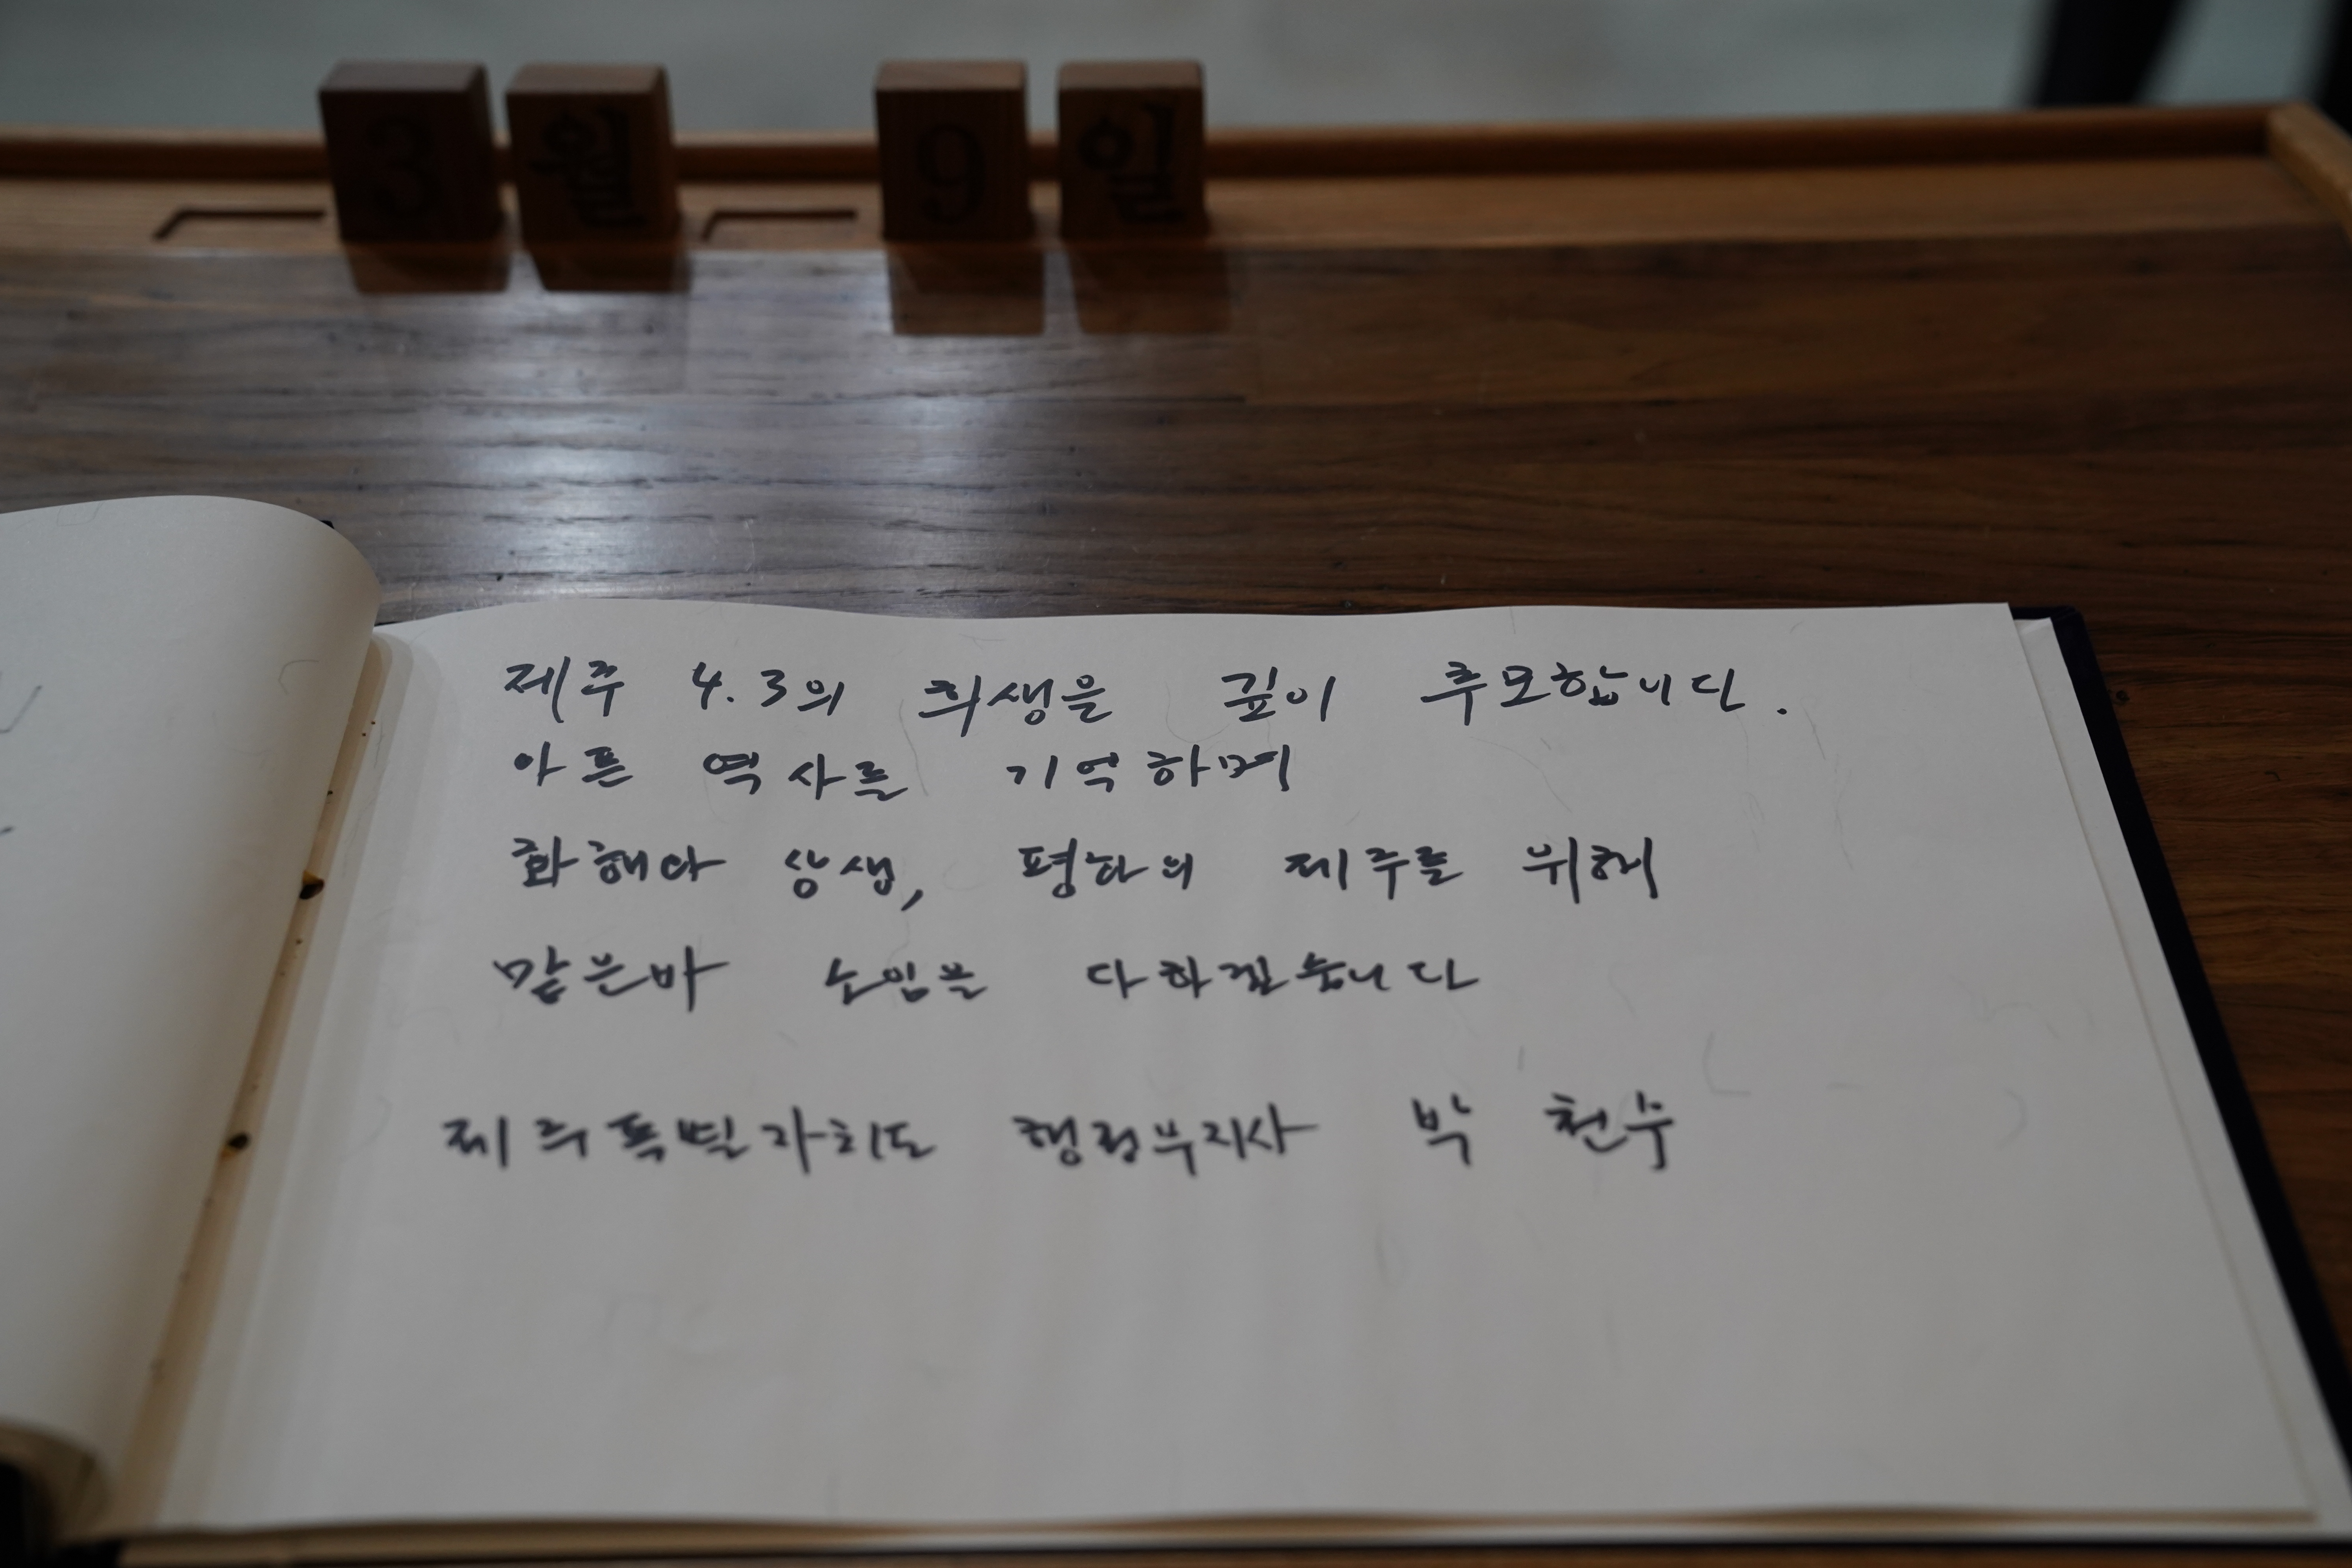 3 월 9 일
제주 4.3의 희생을 깊이 추모합니다.
아픈 역사를 기억하며
화해와 상생, 평화의 제주를 위해
맡은바 소임을 다하겠습니다
제주특별자치도 행정부지사 박 천수